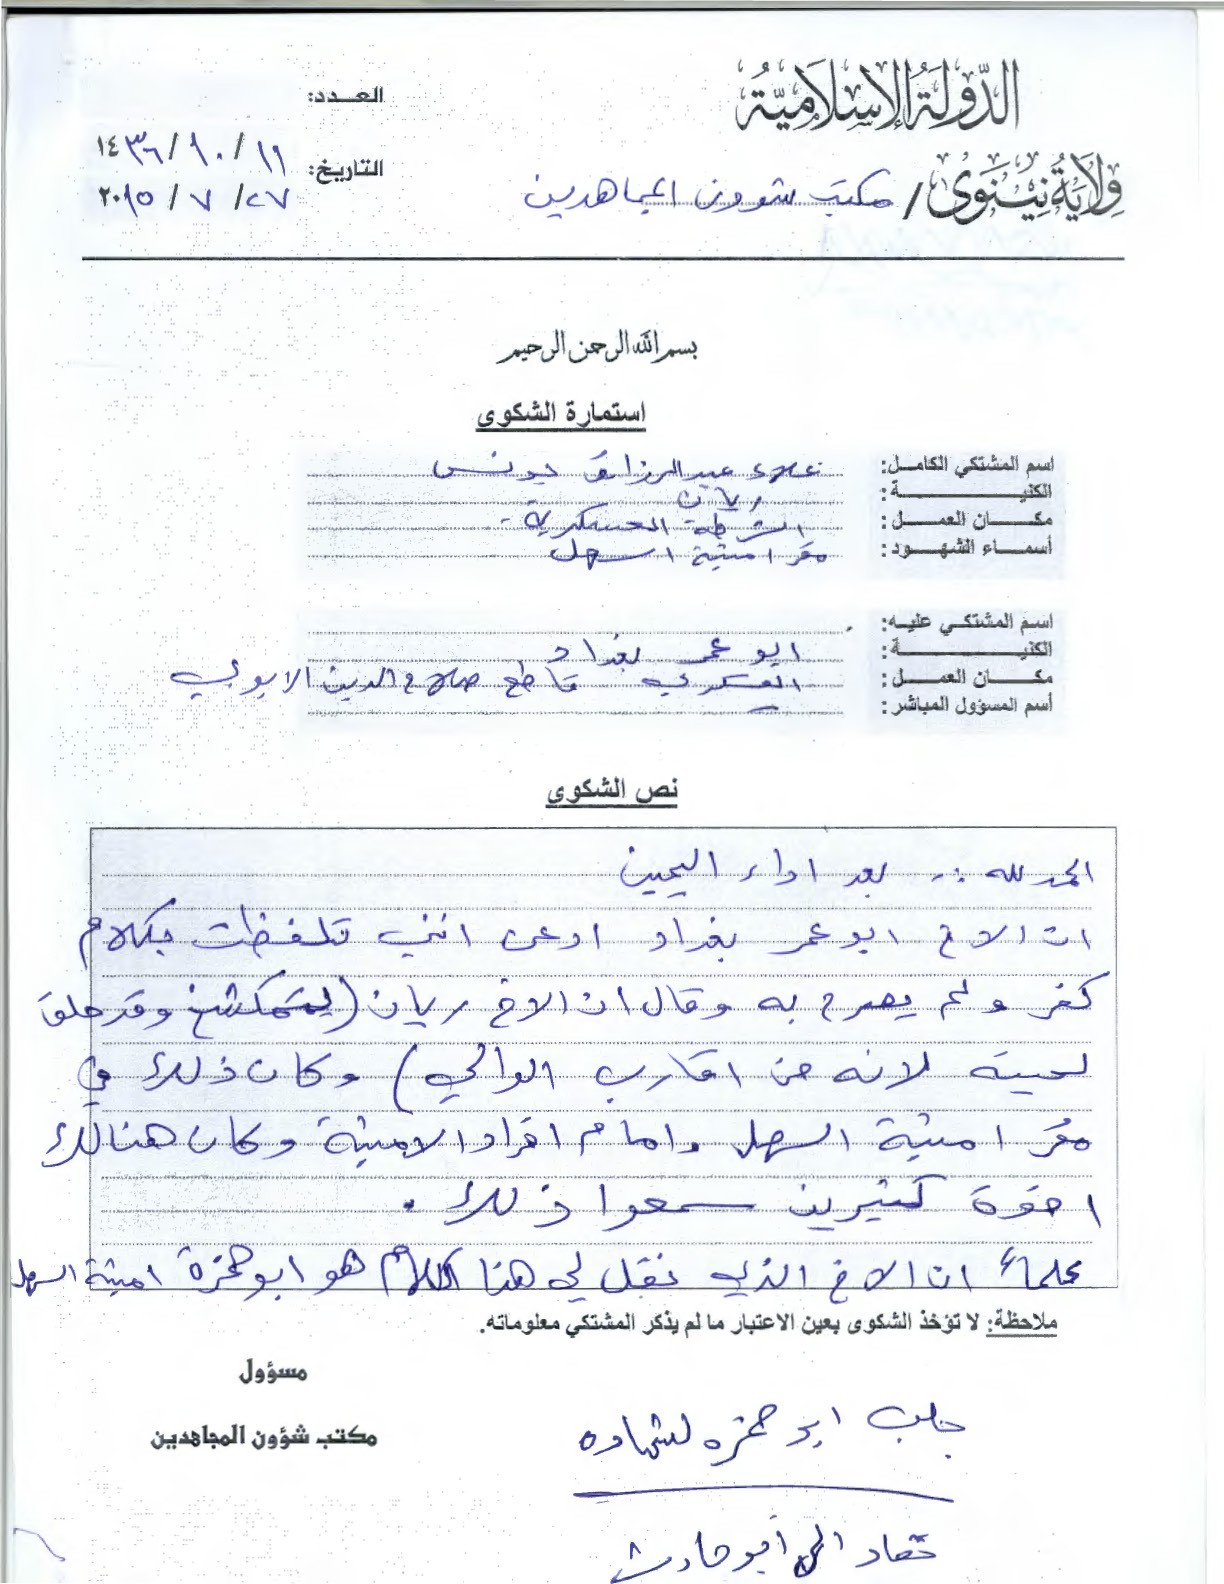 الدولة الإسلامية
ولاية نينوى / مكتب شوون المجاهدين
العدد:
التاريخ: ١١ / ١٠ / ١٤٣٦
٢٧ / ٧ / ٢٠١٥
بسم الله الرحمن الرحيم
استمارة الشكوى
اسم المشتكي الكامل: علاء عبدالرزاق يونس
الكنية: ريان
مكان العمل: الشرطة العسكرية
أسماء الشهود: مقر امنية السهل
اسم المشتكي عليه:
الكنية: ابو عمر بغداد
مكان العمل: العسكري قاطع صلاح الدين الايوبي
أسم المسؤول المباشر:
نص الشكوى
الحمد لله .. بعد اداء اليمين
ان الاخ ابو عمر بغداد ادعى انني تلفظت بكلام
كفر ولم يصرح به وقال ان الاخ ريان ( وقد حلق
لحيته لانه من اقارب الوالي) وكان ذلك في
مقر امنية السهل وامام افراد الامنية وكان هنالك
اخوة كثيرين سمعوا ذلك .
علماً ان الاخ الذي نقل لي هذا الكلام هو ابو حمزة امنية السهل
ملاحظة: لا تؤخذ الشكوى بعين الاعتبار ما لم يذكر المشتكي معلوماته.
مسؤول
مكتب شؤون المجاهدين
جلب ابو حمزه لشهاده
تعاد الى أبو حارث